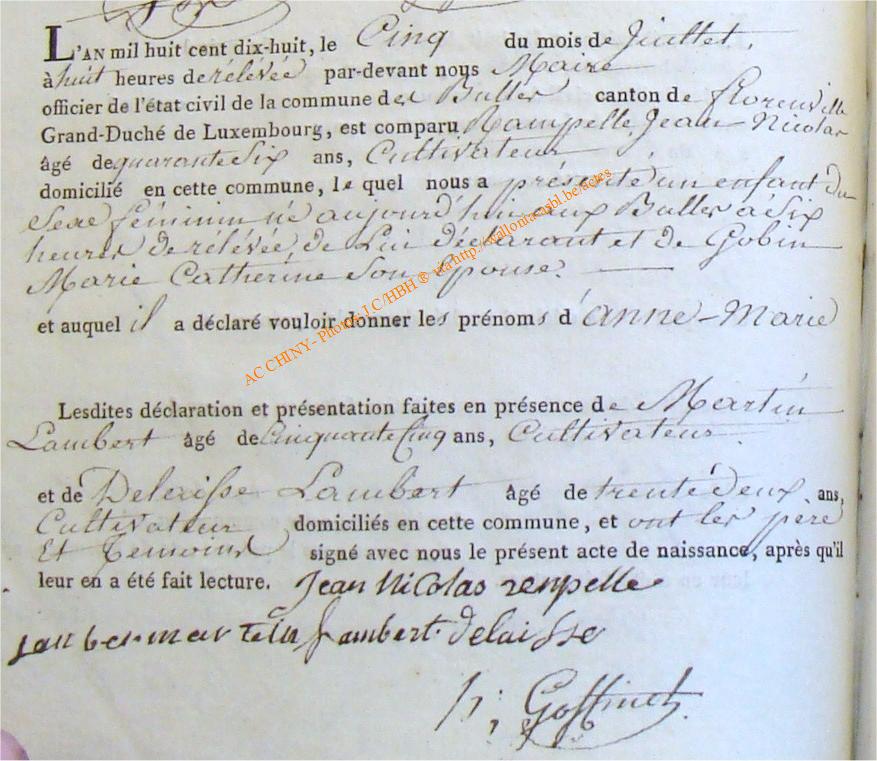 L'AN mil huit cent dix-huit, le Cinq du mois de Juillet,
à huit heures de rélévée par-devant nous Maire
officier de l'état civil de la commune des Bulles canton de florenville
Grand-Duché de Luxembourg, est comparu Rampelle Jean-Nicolas
âgé de quarante Six ans, Cultivateur
domicilié en cette commune, le quel nous a présenté un enfant du
Sexe féminin né aujourd'hui aux Bulles à Six
heures de rélévée de Lui déclarant et de Gobin
Marie Catherine Son Epouse.
et auquel il a déclaré vouloir donner les prénoms d'anne-Marie
AC CHINY - Photos J.C/HBH ® via http://wallonia.asbl.be/actes
Lesdites déclaration et présentation faites en présence de Martin
Lambert âgé de Cinquante Cinq ans, Cultivateur
et de Delaisse Lambert âgé de trente deux ans,
Cultivateur domiciliés en cette commune, et ont les père
Et Temoins signé avec nous le présent acte de naissance, après qu'il
leur en a été fait lecture. Jean Nicolas renpelle
martin Lambert delaisse
Goffinet